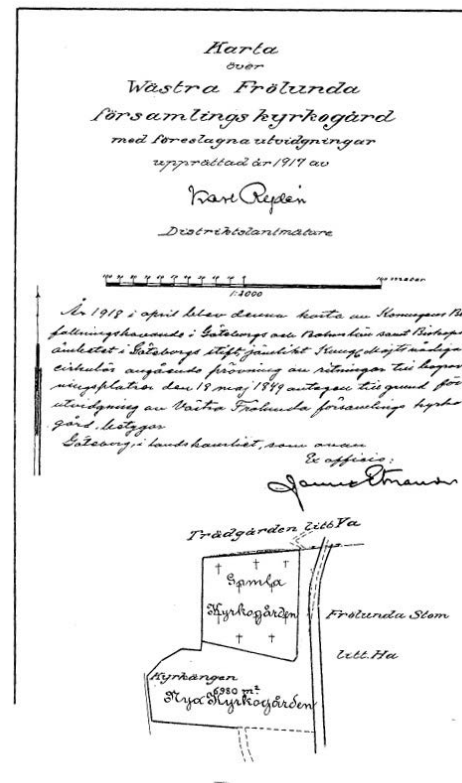 Karta
över
Wästra Frölunda
församlings kyrkogård
med föreslagna utvidgningar
upprättad år 1917 av
Karl Rydén
Distriktslantmätare
meter
1:2000
År 1918 i april blev denna karta av Konungens Be
fallningshavande i Göteborgs och Bohus län samt Biskops
ämbetet i Göteborgs stift, jämlikt Kungl. Majts nådiga
cirkulär angående prövning av ritningar till begrav
ningsplatser den 18 maj 1849 antagen till grund för
utvidgning av Västra Frölunda församlings kyrko
gård, betygar
Göteborg, i landskansliet, som ovan
Ex officio:
Trädgården litt Va
Gamla
Kyrkogården
Frölunda Stom
litt. Ha
Kyrkängen
6980 m²
Nya Kyrkogården